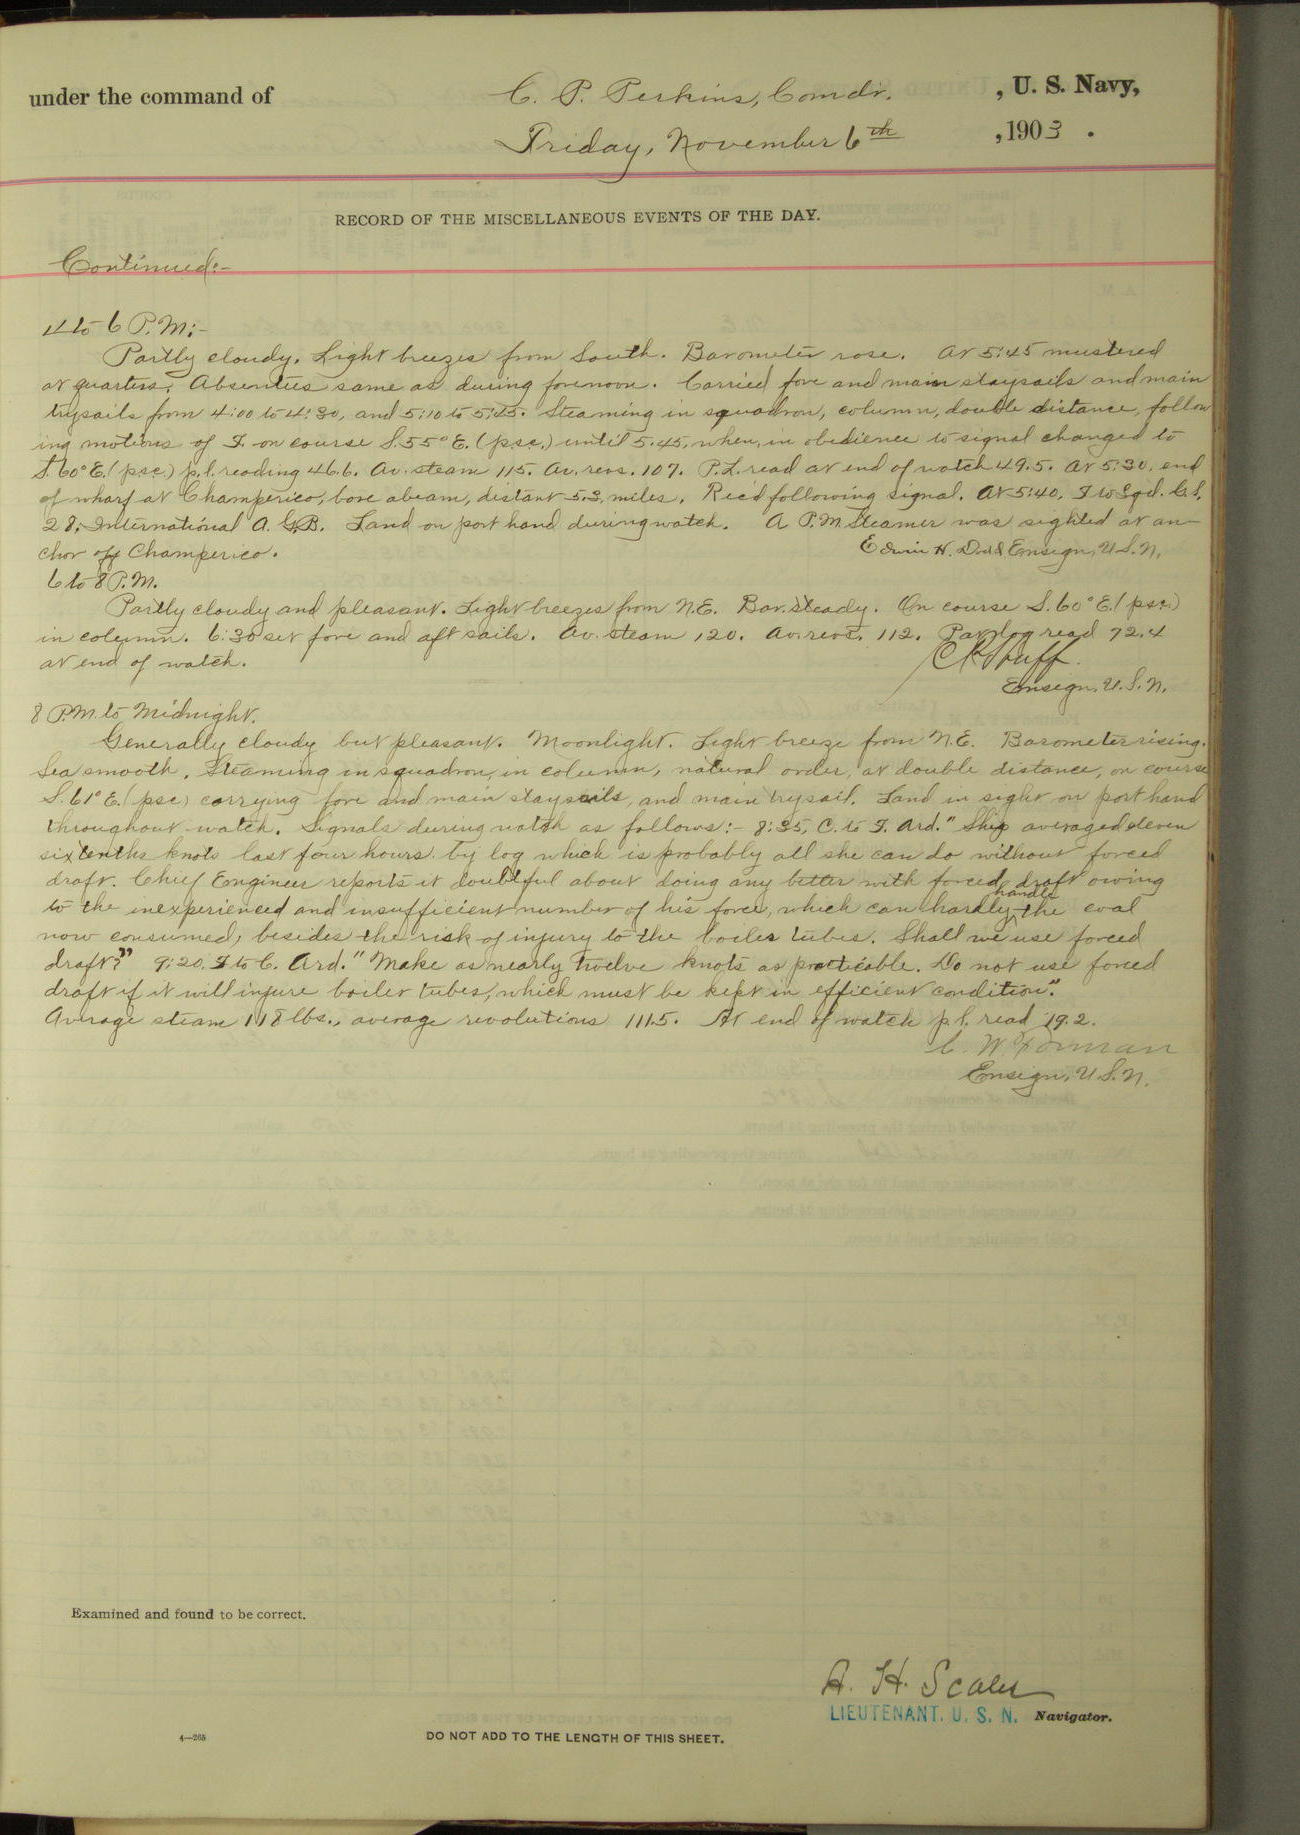 under the command of C. P. Perkins, Comdr. , U. S. Navy,
Friday, November 6th , 1903 .
RECORD OF THE MISCELLANEOUS EVENTS OF THE DAY.
Continued:-
4 to 6 P.M:-
Partly cloudy. Light breezes from South. Barometer rose. At 5:45 mustered
at quarters; Absentees same as during forenoon. Carried fore and main staysails and main
trysails from 4:00 to 4:30, and 5:10 to 5:45. Steaming in squadron, column, double distance, follow
ing motions of F. on course S.55°E. (p.s.c.) until 5.45, when, in obedience to signal changed to
S.60°E. (p.s.c.) p.l. reading 46.6. Av. steam 115. Av. revs. 107. P.L. read at end of watch 49.5. At 5:30, end
of wharf at Champerico, bore abeam, distant 5.3, miles. Rec'd following signal. At 5:40, F to Sqd. G.S.
28; International A. G.B. Land on port hand during watch. A P.M. Steamer was sighted at an-
chor off Champerico. Edwin H. Dodd Ensign, U.S.N.
6 to 8 P.M.
Partly cloudy and pleasant. Light breezes from N.E. Bar. steady. On course S.60°E. (psc.)
in column. 6:30 set fore and aft sails. Av. steam 120. Av. revs. 112. Pat. log read 72.4
at end of watch.
Ensign, U.S.N.
8 P.M. to Midnight.
Generally cloudy but pleasant. Moonlight. Light breeze from N.E. Barometer rising.
Sea smooth. Steaming in squadron, in column, natural order, at double distance, on course
S.61°E. (psc) carrying fore and main staysails, and main trysail. Land in sight on port hand
throughout watch. Signals during watch as follows:- 8:35, C. to F. Ard. "Ship averaged eleven
six tenths knots last four hours by log which is probably all she can do without forced
draft. Chief Engineer reports it doubtful about doing any better with forced draft owing
to the inexperienced and insufficient number of his force, which can hardly handle the coal
now consumed, besides the risk of injury to the boiler tubes. Shall we use forced
draft?" 9:20, F to C. Ard. "Make as nearly twelve knots as practicable. Do not use forced
draft if it will injure boiler tubes, which must be kept in efficient condition."
Average steam 118 lbs., average revolutions 111.5. At end of watch p.l. read 19.2.
C. W. Forman
Ensign, U.S.N.
Examined and found to be correct.
A. H. Scales
LIEUTENANT. U. S. N. Navigator.
4—265 DO NOT ADD TO THE LENGTH OF THIS SHEET.